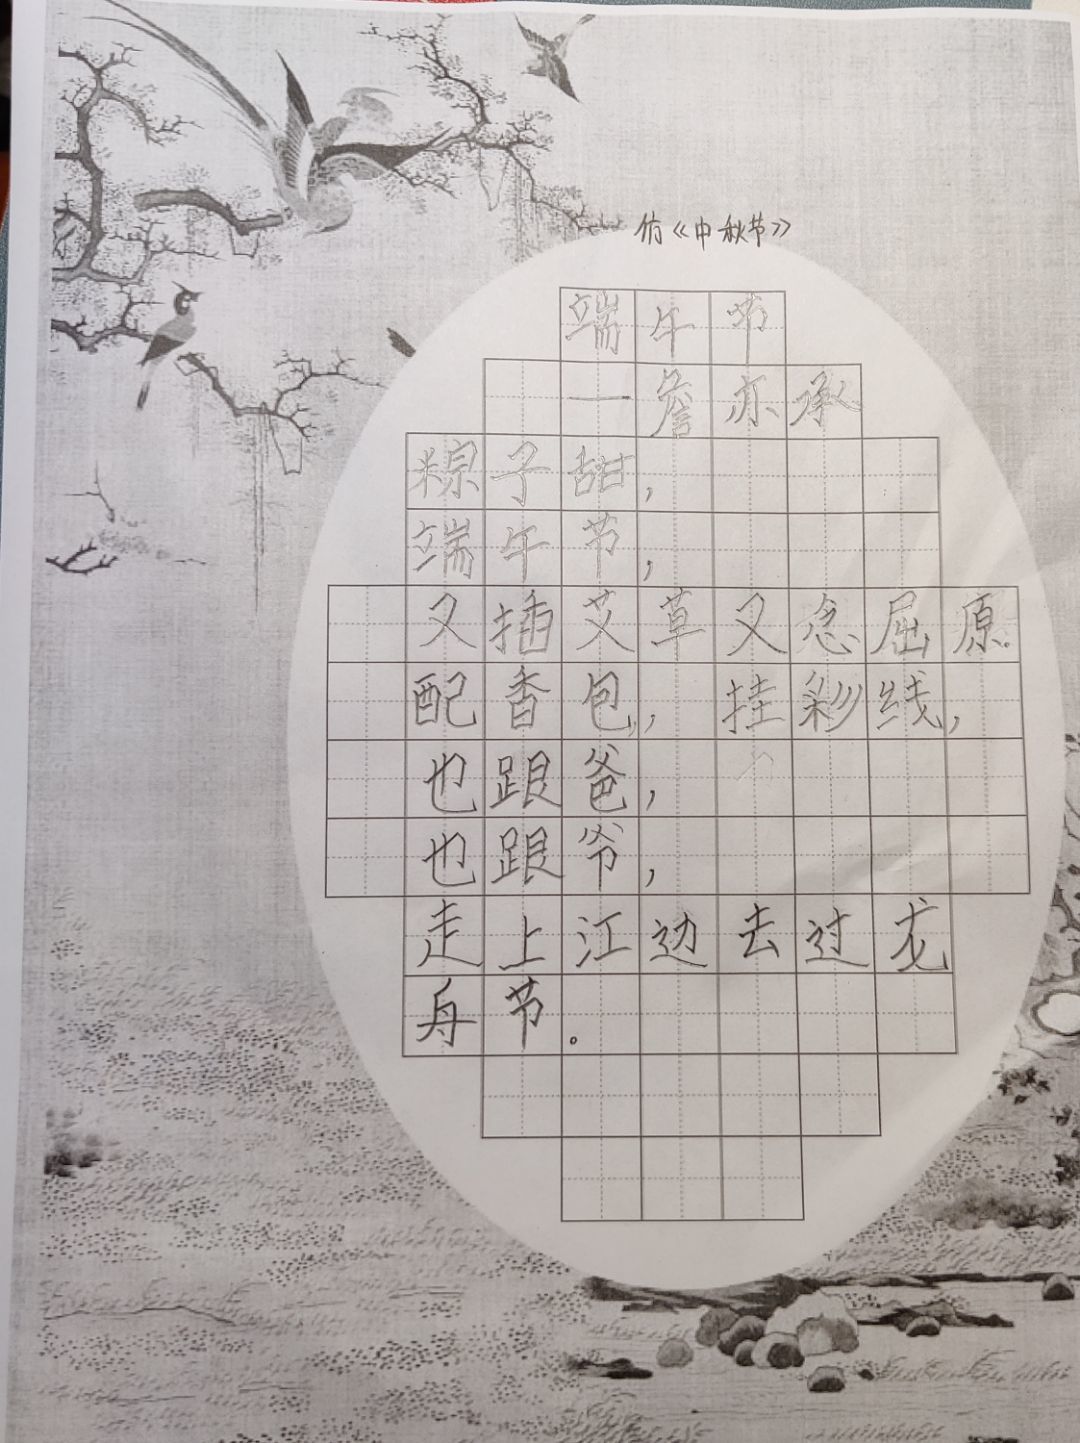 仿《中秋节》
端午节
一詹亦承
粽子甜，
端午节，
又插艾草又念屈原。
配香包，挂彩线，
也跟爸，
也跟爷，
走上江边去过龙
舟节。